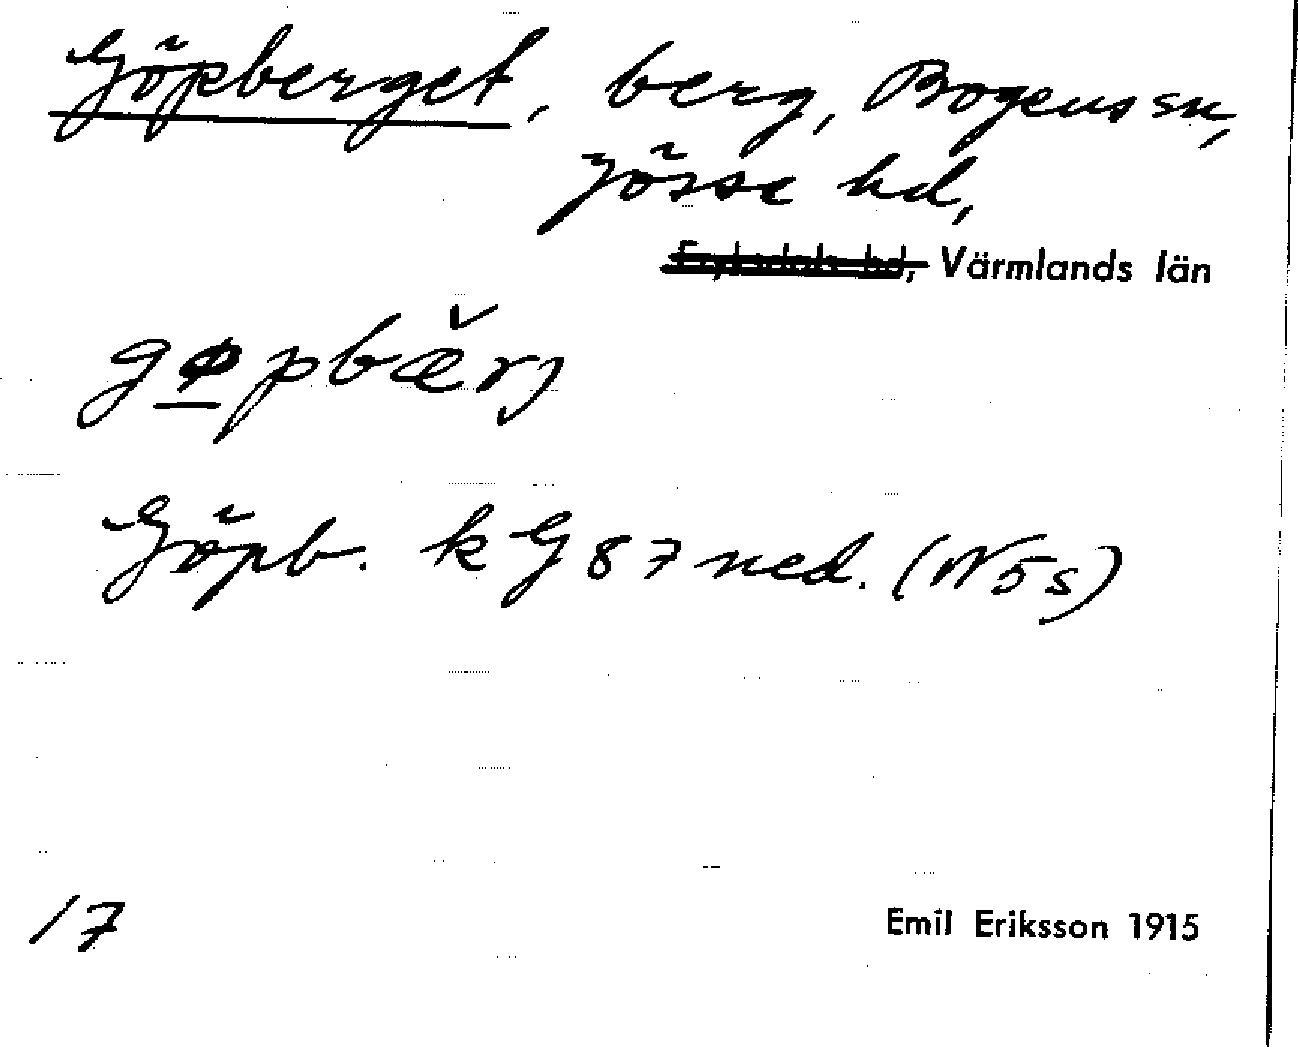 Göpberget, berg, Bogens sn,
Jösse hd,
Fryksdals hd, Värmlands län
gøpbæ̌rj
Göpb. k G 87 ned. (N5s)
17
Emil Eriksson 1915